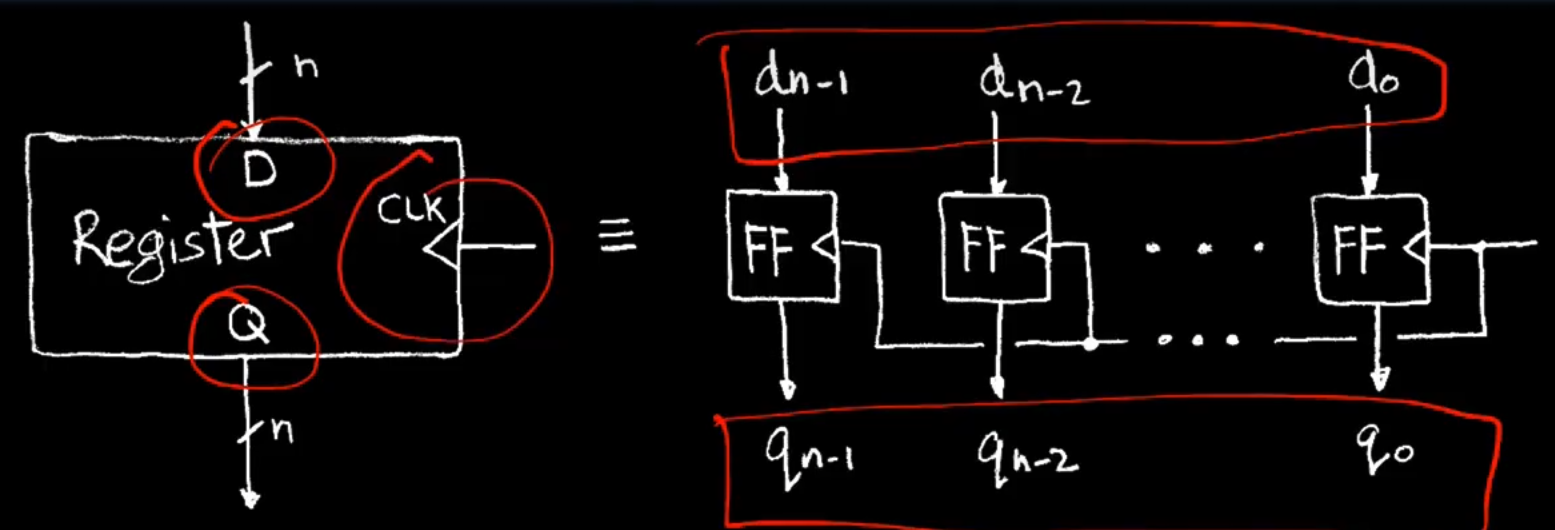 n
D
CLK
Register
Q
n
≡
dn-1 dn-2 d0
FF FF . . . FF
. . .
qn-1 qn-2 q0